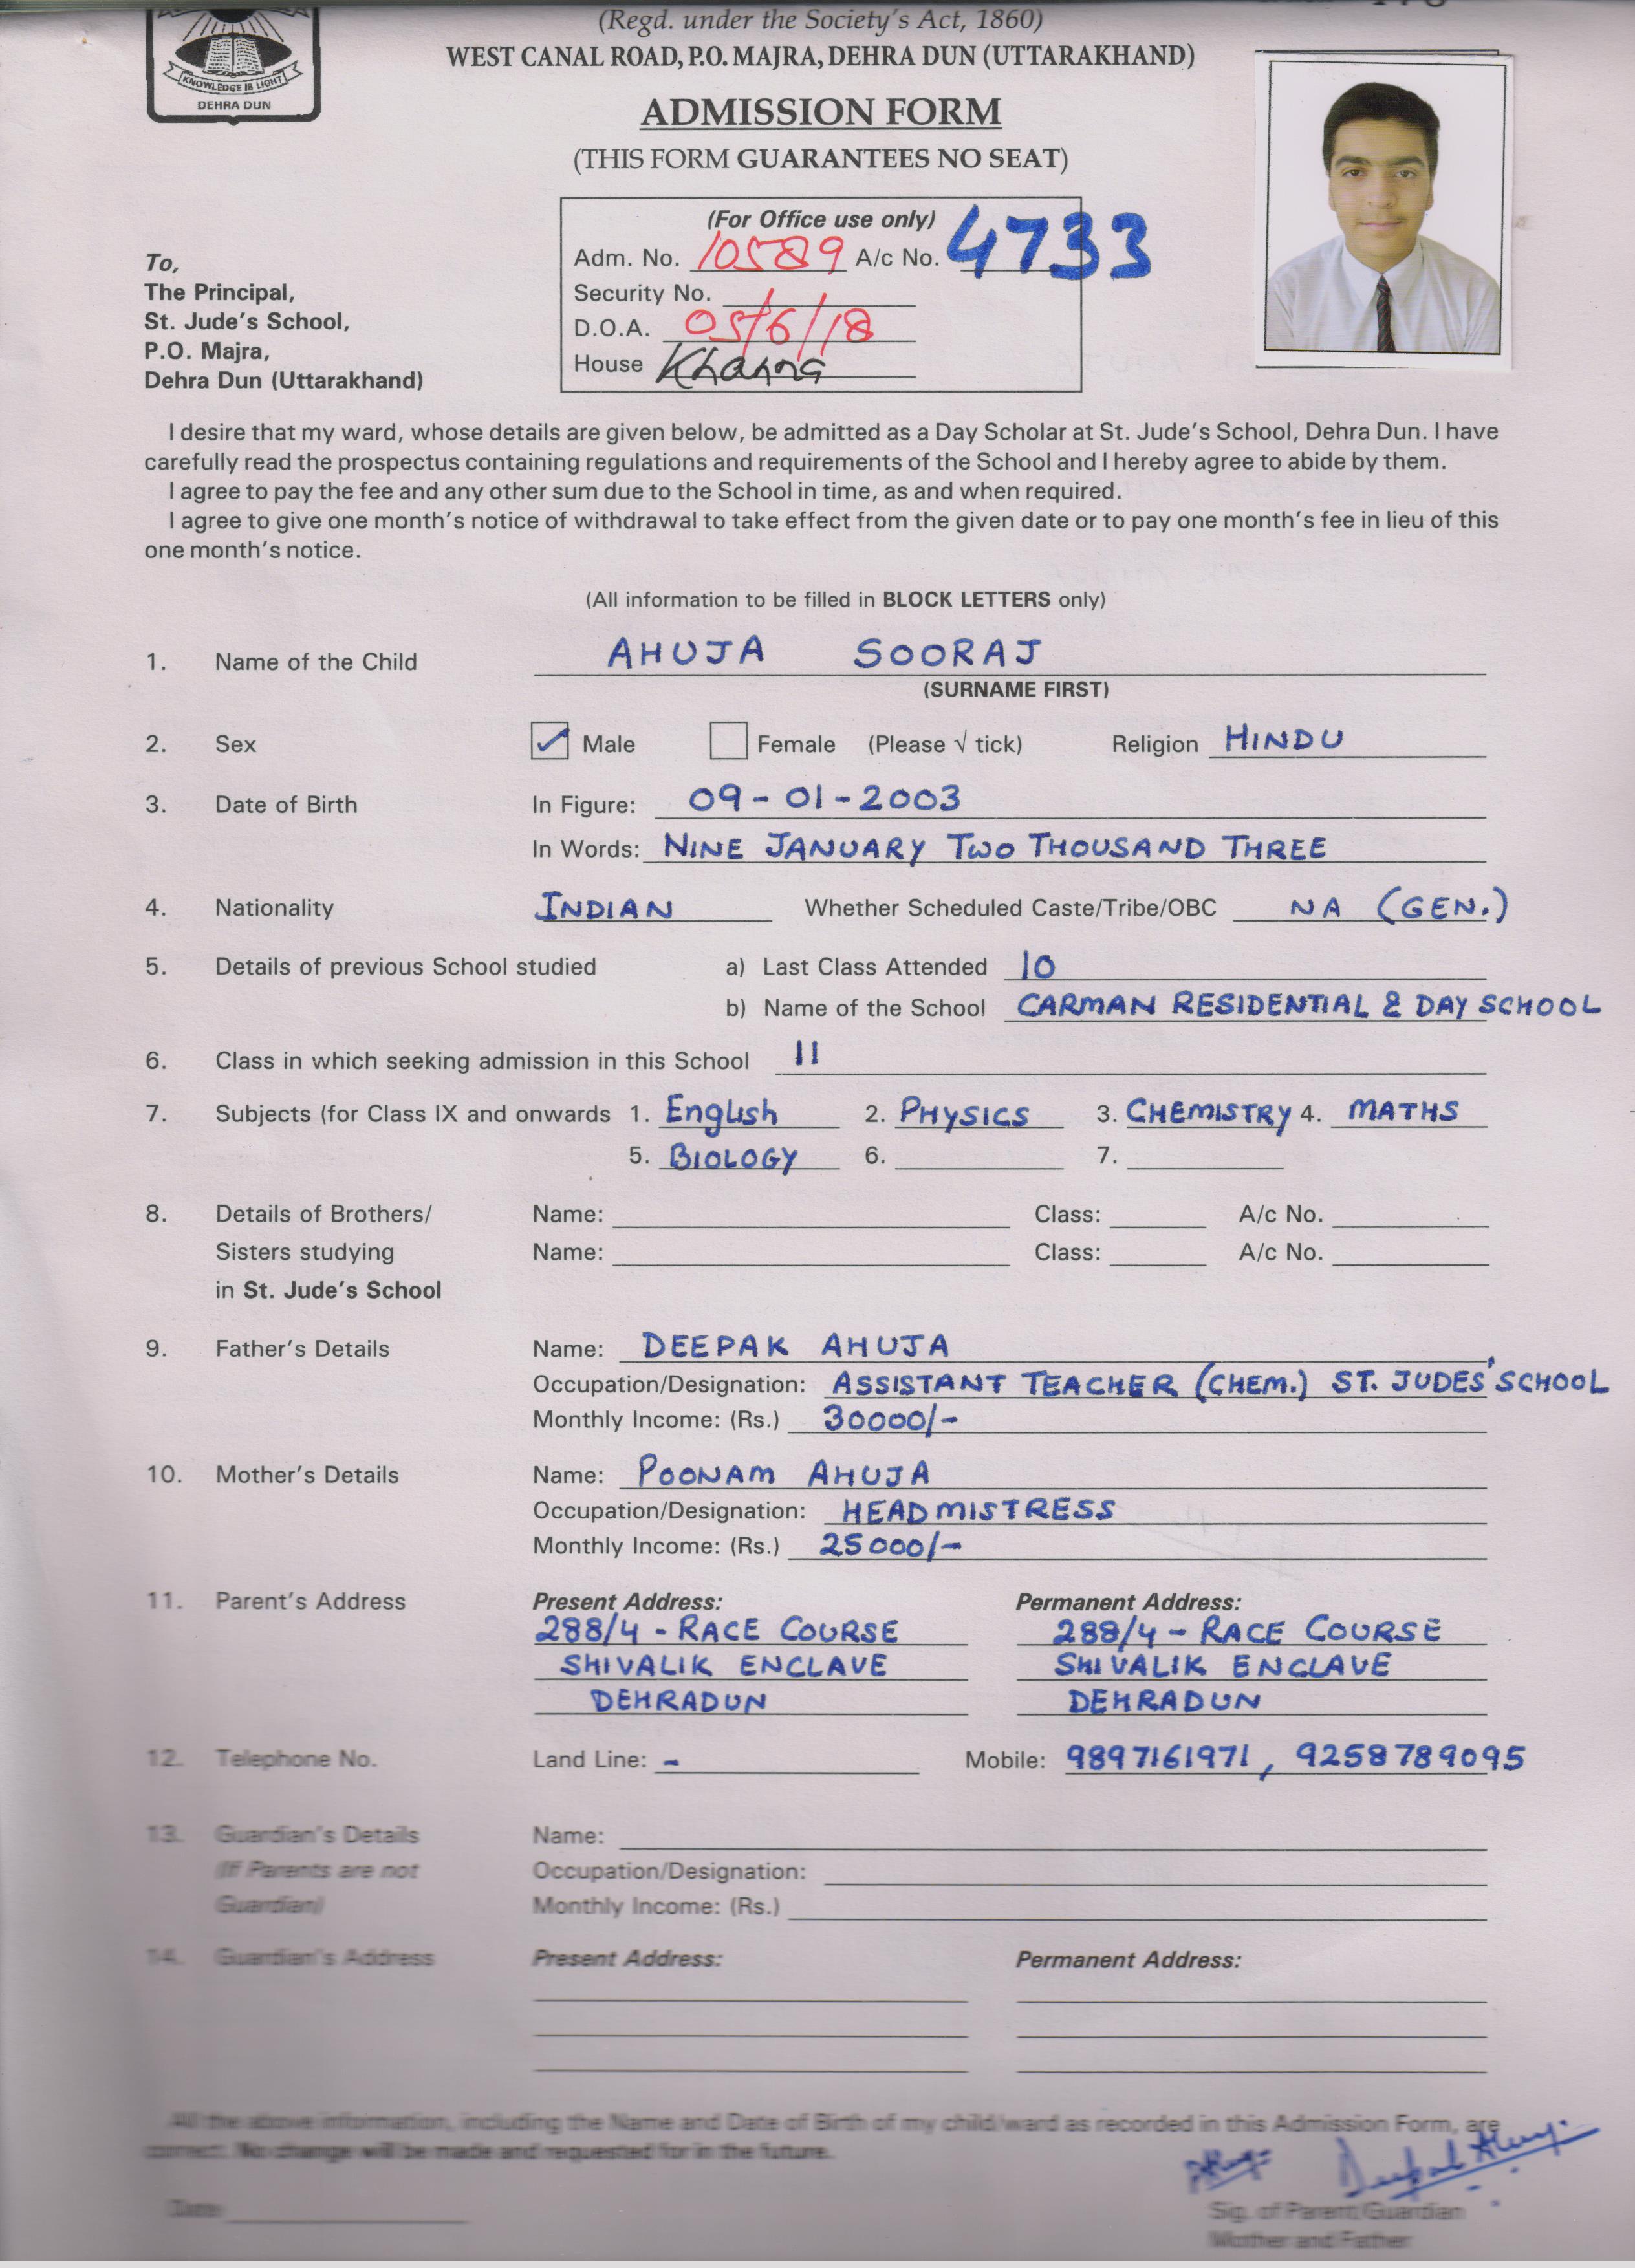 (Regd. under the Society's Act, 1860)
WEST CANAL ROAD, P.O. MAJRA, DEHRA DUN (UTTARAKHAND)
KNOWLEDGE IS LIGHT
DEHRA DUN
ADMISSION FORM
(THIS FORM GUARANTEES NO SEAT)
(For Office use only)
Adm. No. 10589 A/c No. 4733
Security No.
D.O.A. 05/6/18
House Khanna
To,
The Principal,
St. Jude's School,
P.O. Majra,
Dehra Dun (Uttarakhand)
I desire that my ward, whose details are given below, be admitted as a Day Scholar at St. Jude's School, Dehra Dun. I have
carefully read the prospectus containing regulations and requirements of the School and I hereby agree to abide by them.
I agree to pay the fee and any other sum due to the School in time, as and when required.
I agree to give one month's notice of withdrawal to take effect from the given date or to pay one month's fee in lieu of this
one month's notice.
(All information to be filled in BLOCK LETTERS only)
1. Name of the Child AHUJA SOORAJ
(SURNAME FIRST)
2. Sex ✓ Male Female (Please √ tick) Religion HINDU
3. Date of Birth In Figure: 09-01-2003
In Words: NINE JANUARY TWO THOUSAND THREE
4. Nationality INDIAN Whether Scheduled Caste/Tribe/OBC NA (GEN.)
5. Details of previous School studied a) Last Class Attended 10
b) Name of the School CARMAN RESIDENTIAL & DAY SCHOOL
6. Class in which seeking admission in this School 11
7. Subjects (for Class IX and onwards 1. English 2. PHYSICS 3. CHEMISTRY 4. MATHS
5. BIOLOGY 6. 7.
8. Details of Brothers/ Name: Class: A/c No.
Sisters studying Name: Class: A/c No.
in St. Jude's School
9. Father's Details Name: DEEPAK AHUJA
Occupation/Designation: ASSISTANT TEACHER (CHEM.) ST. JUDES' SCHOOL
Monthly Income: (Rs.) 30000/-
10. Mother's Details Name: POONAM AHUJA
Occupation/Designation: HEADMISTRESS
Monthly Income: (Rs.) 25000/-
11. Parent's Address Present Address: Permanent Address:
288/4 - RACE COURSE 288/4 - RACE COURSE
SHIVALIK ENCLAVE SHIVALIK ENCLAVE
DEHRADUN DEHRADUN
12. Telephone No. Land Line: - Mobile: 9897161971, 9258789095
13. Guardian's Details Name:
(If Parents are not Occupation/Designation:
Guardian) Monthly Income: (Rs.)
14. Guardian's Address Present Address: Permanent Address:
All the above information, including the Name and Date of Birth of my child/ward as recorded in this Admission Form, are
correct. No change will be made and requested for in the future.
Deepak Ahuja
Date
Sig. of Parent/Guardian
Mother and Father